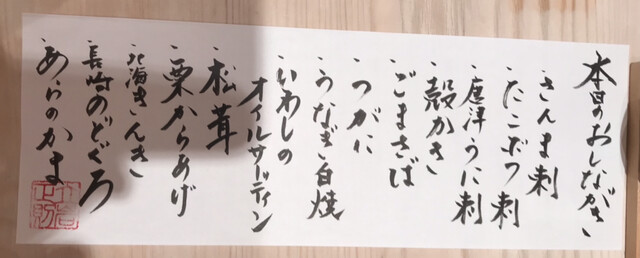 本日のおしながき
・さんま刺
・たこぶつ刺
・唐津うに刺
・殻かき
・ごまさば
・つがに
・うなぎ白焼
・いわしの
オイルサーディン
・松茸
・栗からあげ
・北海きんき
・長崎のどぐろ
・あらのかま